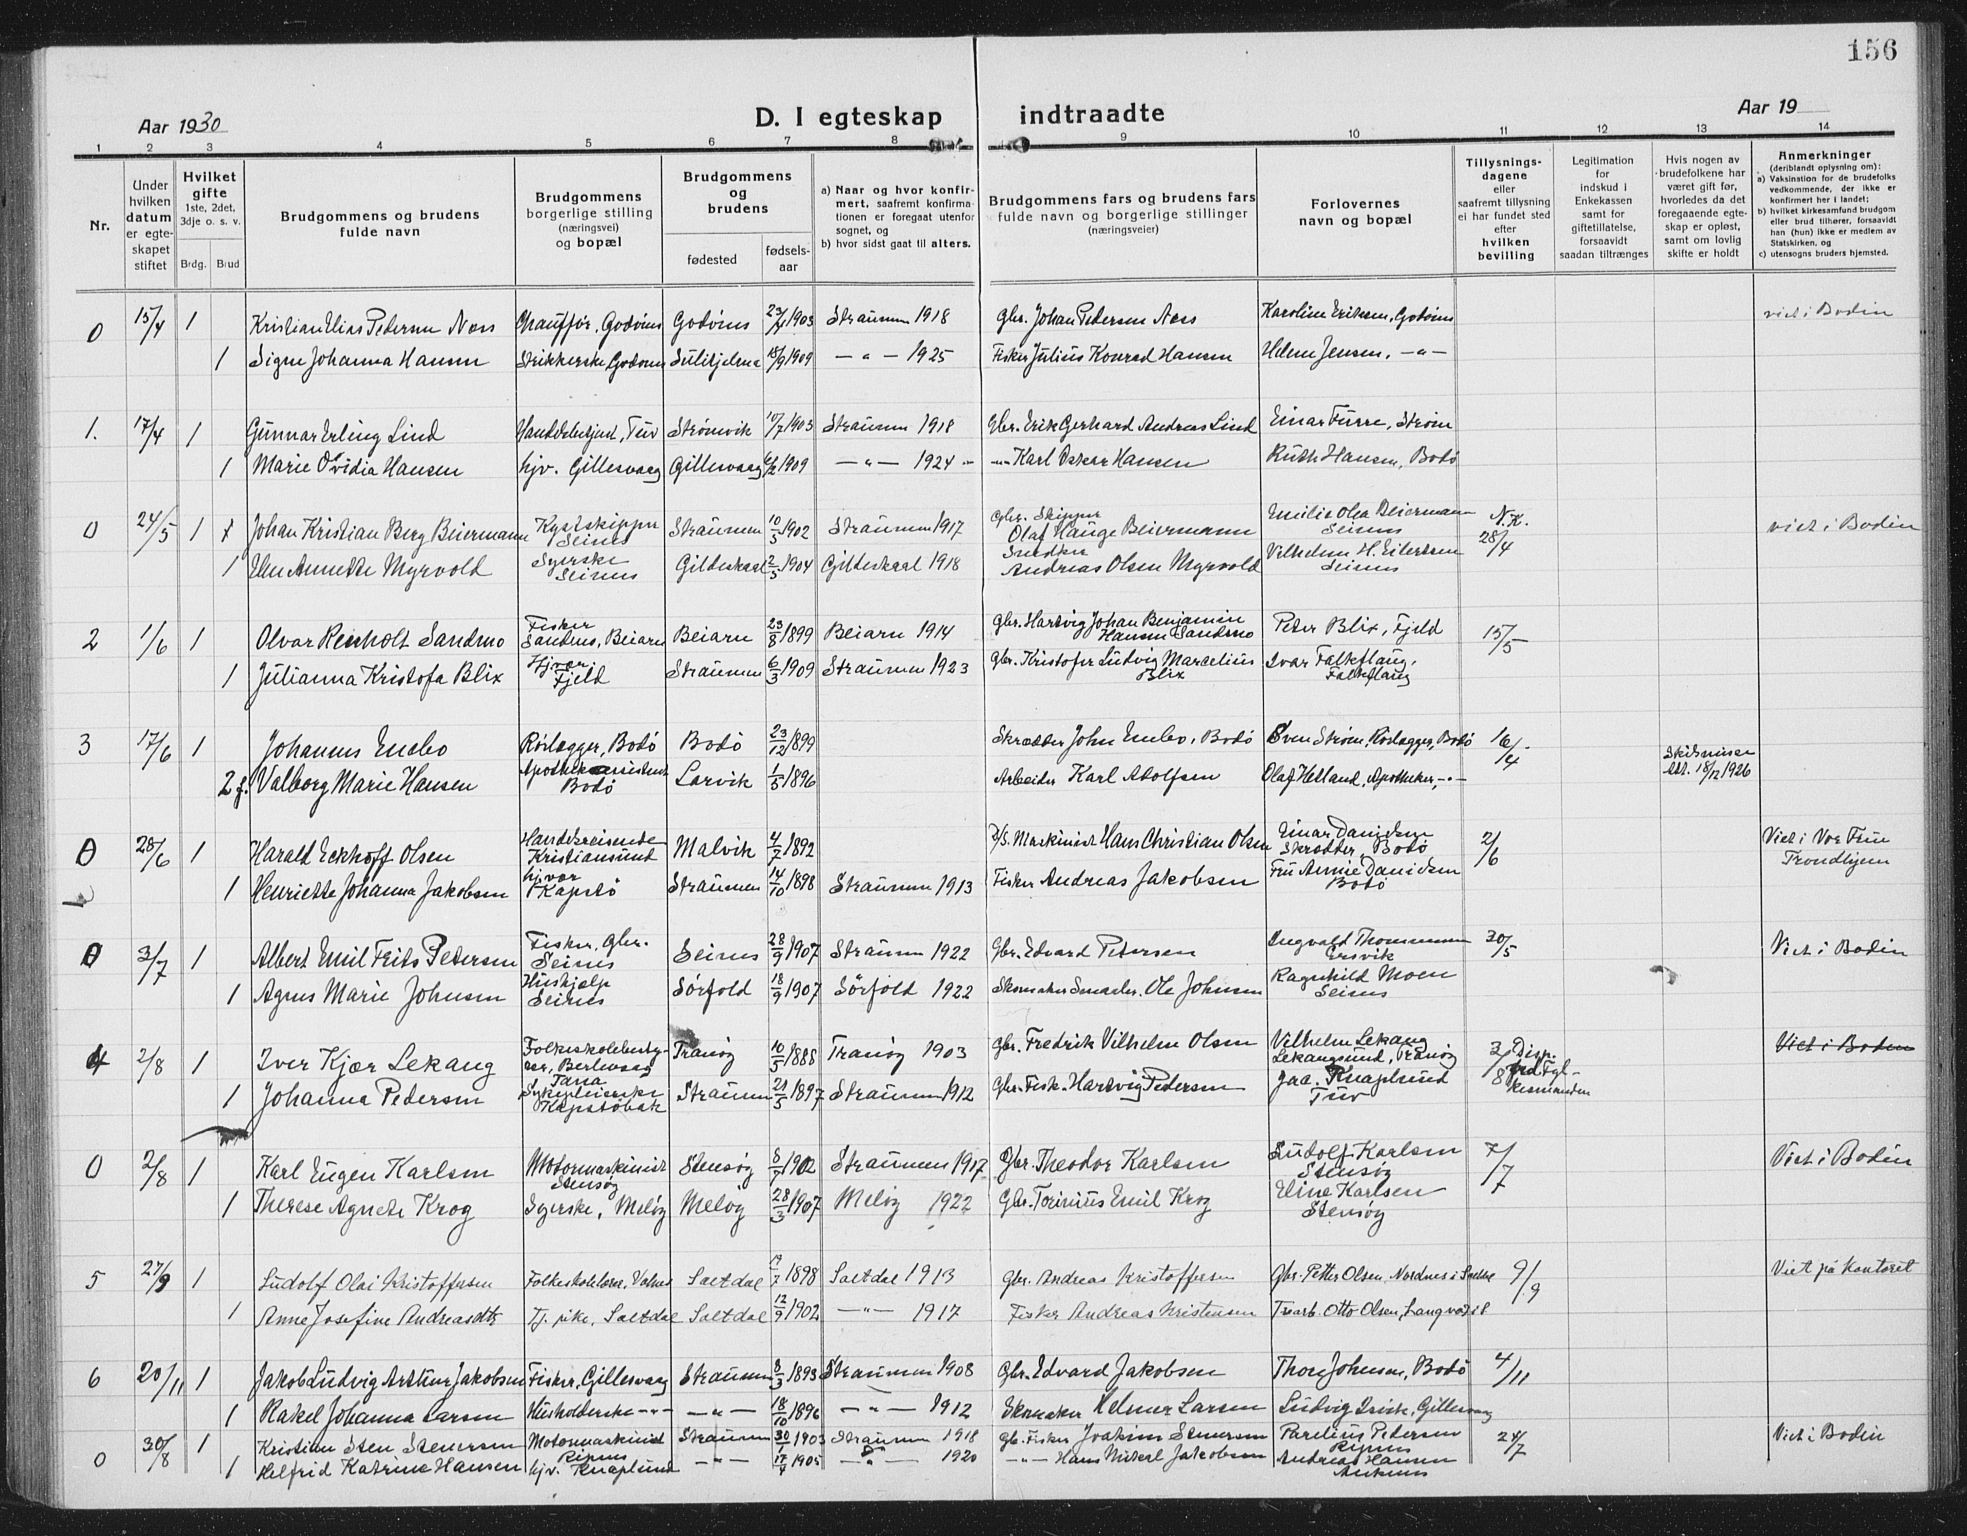 156
Aar 1930
D. I egteskap indtraadte
Aar 19
1 2 3 4 5 6 7 8 9 10 11 12 13 14
Nr.
Under hvilken datum er egte-skapet stiftet
Hvilket gifte 1ste, 2det, 3dje o. s. v.
Brdg. Brud
Brudgommens og brudens fulde navn
Brudgommens borgerlige stilling (næringsvei) og bopæl
Brudgommens og brudens
fødested
fødsels-aar
a) Naar og hvor konfir-mert, saafremt konfirma-tionen er foregaat utenfor sognet, og
b) hvor sidst gaat til alters.
Brudgommens fars og brudens fars fulde navn og borgerlige stillinger (næringsveier)
Forlovernes navn og bopæl
Tillysnings-dagene eller saafremt tillysning ei har fundet sted efter hvilken bevilling
Legitimation for indskud i Enkekassen samt for giftetillatelse, forsaavidt saadan tiltrænges
Hvis nogen av brudefolkene har været gift før, hvorledes da det foregaaende egte-skap er opløst, samt om lovlig skifte er holdt
Anmerkninger (deriblandt oplysning om):
a) Vaksination for de brudefolks vedkommende, der ikke er konfirmert her i landet;
b) hvilket kirkesamfund brudgom eller brud tilhører, forsaavidt han (hun) ikke er medlem av Statskirken, og
c) utensogns bruders hjemsted.
0 15/4 1 Kristian Elias Pedersen Næss Chauffør, Godönes Godönes 23/4 1903 Straumen 1918 Gbr. Johan Pedersen Næss Karoline Eriksen, Godönes viet i Bodin
1 Signe Johanna Hansen Strikkerske, Godönes Sulitjelma 18/9 1909 — " — 1925 Fisker Julius Konrad Hansen Helene Jensen, — " —
1. 17/4 1 Gunnar Erling Lind Handelsbetjent, Tuv Strömvik 10/7 1903 Straumen 1918 Gbr. Erik Gerhard Andreas Lind Einar Furre, Ström
1 Marie Ovidia Hansen hjv. Gillesvaag Gillesvaag 6/2 1909 — " — 1924 — " — Karl Oskar Hansen Ruth Hansen, Bodö
0 24/5 1 Johan Kristian Berg Beiermann Kystskipper Seines Straumen 10/5 1902 Straumen 1917 Gbr. Skipper Olaf Hauge Beiermann Emilie Olea Beiermann Seines N.K. 28/4 viet i Bodin
1 Elen Annette Myrvold Syerske Seines Gildeskaal 2/5 1904 Gildeskaal 1918 Snedker Andreas Olsen Myrvold Vilhelm H. Eilertsen Seines
2 1/6 1 Olvar Reinholt Sandmo Fisker Sandnes, Beiarn Beiarn 23/8 1899 Beiarn 1914 Gbr. Hartvig Johan Benjamin Hansen Sandmo Peter Blix, Fjeld 15/5
1 Julianna Kristofa Blix Hjvær. Fjeld Straumen 6/3 1909 Straumen 1923 Gbr. Kristofer Ludvig Marcelius Blix Ivar Falkflaug, Falkflaug
3 17/6 1 Johannes Enebo Rörlægger, Bodö Bodö 23/12 1899 Skrædder John Enebo, Bodö Sven Ström, Rörlægger, Bodö 16/4
2 f. Valborg Marie Hansen Apothekerassistent Bodö Larvik 1/5 1896 Arbeider Karl Adolfsen Olaf Hetland, Apotheker, — " — Skilsmisse Att. 18/12 1926
0 28/6 1 Harald Eckhoff Olsen Handelsreisende Kristiansund Malvik 4/7 1892 D/S. Maskinist Hans Christian Olsen Einar Danielsen Skrædder, Bodö 2/6 Viet i Vor Frue Trondhjem
1 Henriette Johanna Jakobsen hjvær Kapstö Straumen 14/10 1898 Straumen 1913 Fisker Andreas Jakobsen Fru Annie Danielsen Bodö
0 3/7 1 Albert Emil Frits Petersen Fisker, Gbr. Seines Seines 28/9 1907 Straumen 1922 Gbr. Edvard Petersen Ingvald Thommesen Ersvik 30/5 Viet i Bodin
1 Agnes Marie Johnsen Hushjelp Seines Sörfold 18/9 1907 Sörfold 1922 Skomaker Ole Johnsen Ragnhild Moen Seines
4 2/8 1 Iver Kjær Lekang Folkeskolebesty-rer, Berlevaag Tana Tranöy 10/5 1888 Tranöy 1903 Gbr. Fredrik Vilhelm Olsen Vilhelm Lekang Lekangsund, Tranöy Viet i Bodin
1 Johanna Pedersen Sykepleierske Kapstöbak Straumen 21/5 1897 Straumen 1912 Gbr. Fisk. Hartvig Pedersen Jaa. Knaplund Tuv
0 2/8 1 Karl Eugen Karlsen Motormaskinist Stensöy Stensöy 8/7 1902 Straumen 1917 Gbr. Theodor Karlsen Ludolf Karlsen Stensöy 7/7 Viet i Bodin
1 Therese Agnete Krog Syerske, Melöy Melöy 28/3 1907 Melöy 1922 Gbr. Emil Krog Eline Karlsen Stensöy
5 27/9 1 Ludolf Olai Kristoffersen Folkeskolelærer, Valnes Saltdal 17/7 1898 Saltdal 1913 Gbr. Andreas Kristoffersen Gbr. Petter Olsen, Nordnes i Saltdal 9/9 Viet på kontoret
1 Anne Josefine Andreasdtr Tj. pike, Saltdal Saltdal 12/9 1902 — " — 1917 Fisker Andreas Kristensen Otto Olsen, Langvad
6 20/11 1 Jakob Ludvig Arthur Jakobsen Fisker, Gillesvaag Straumen 8/3 1893 Straumen 1908 Gbr. Edvard Jakobsen Thore Johnsen, Bodö 4/11
1 Rakel Johanna Larsen Husholderske — " — — " — 18/10 1896 — " — 1912 Skomaker Helmer Larsen Ludvig, Gillesvaag
0 30/8 1 Kristian Sten Stenersen Motormaskinist Ripnes Straumen 30/1 1903 Straumen 1918 Gb. Fisker Joakim Stenersen Parelius Pedersen Ripnes 24/7 Viet i Bodin
1 Helfrid Katrine Hansen hjv. Knaplund — " — 17/4 1905 — " — 1920 — " — Hans Mikal Jakobsen Andreas Hansen